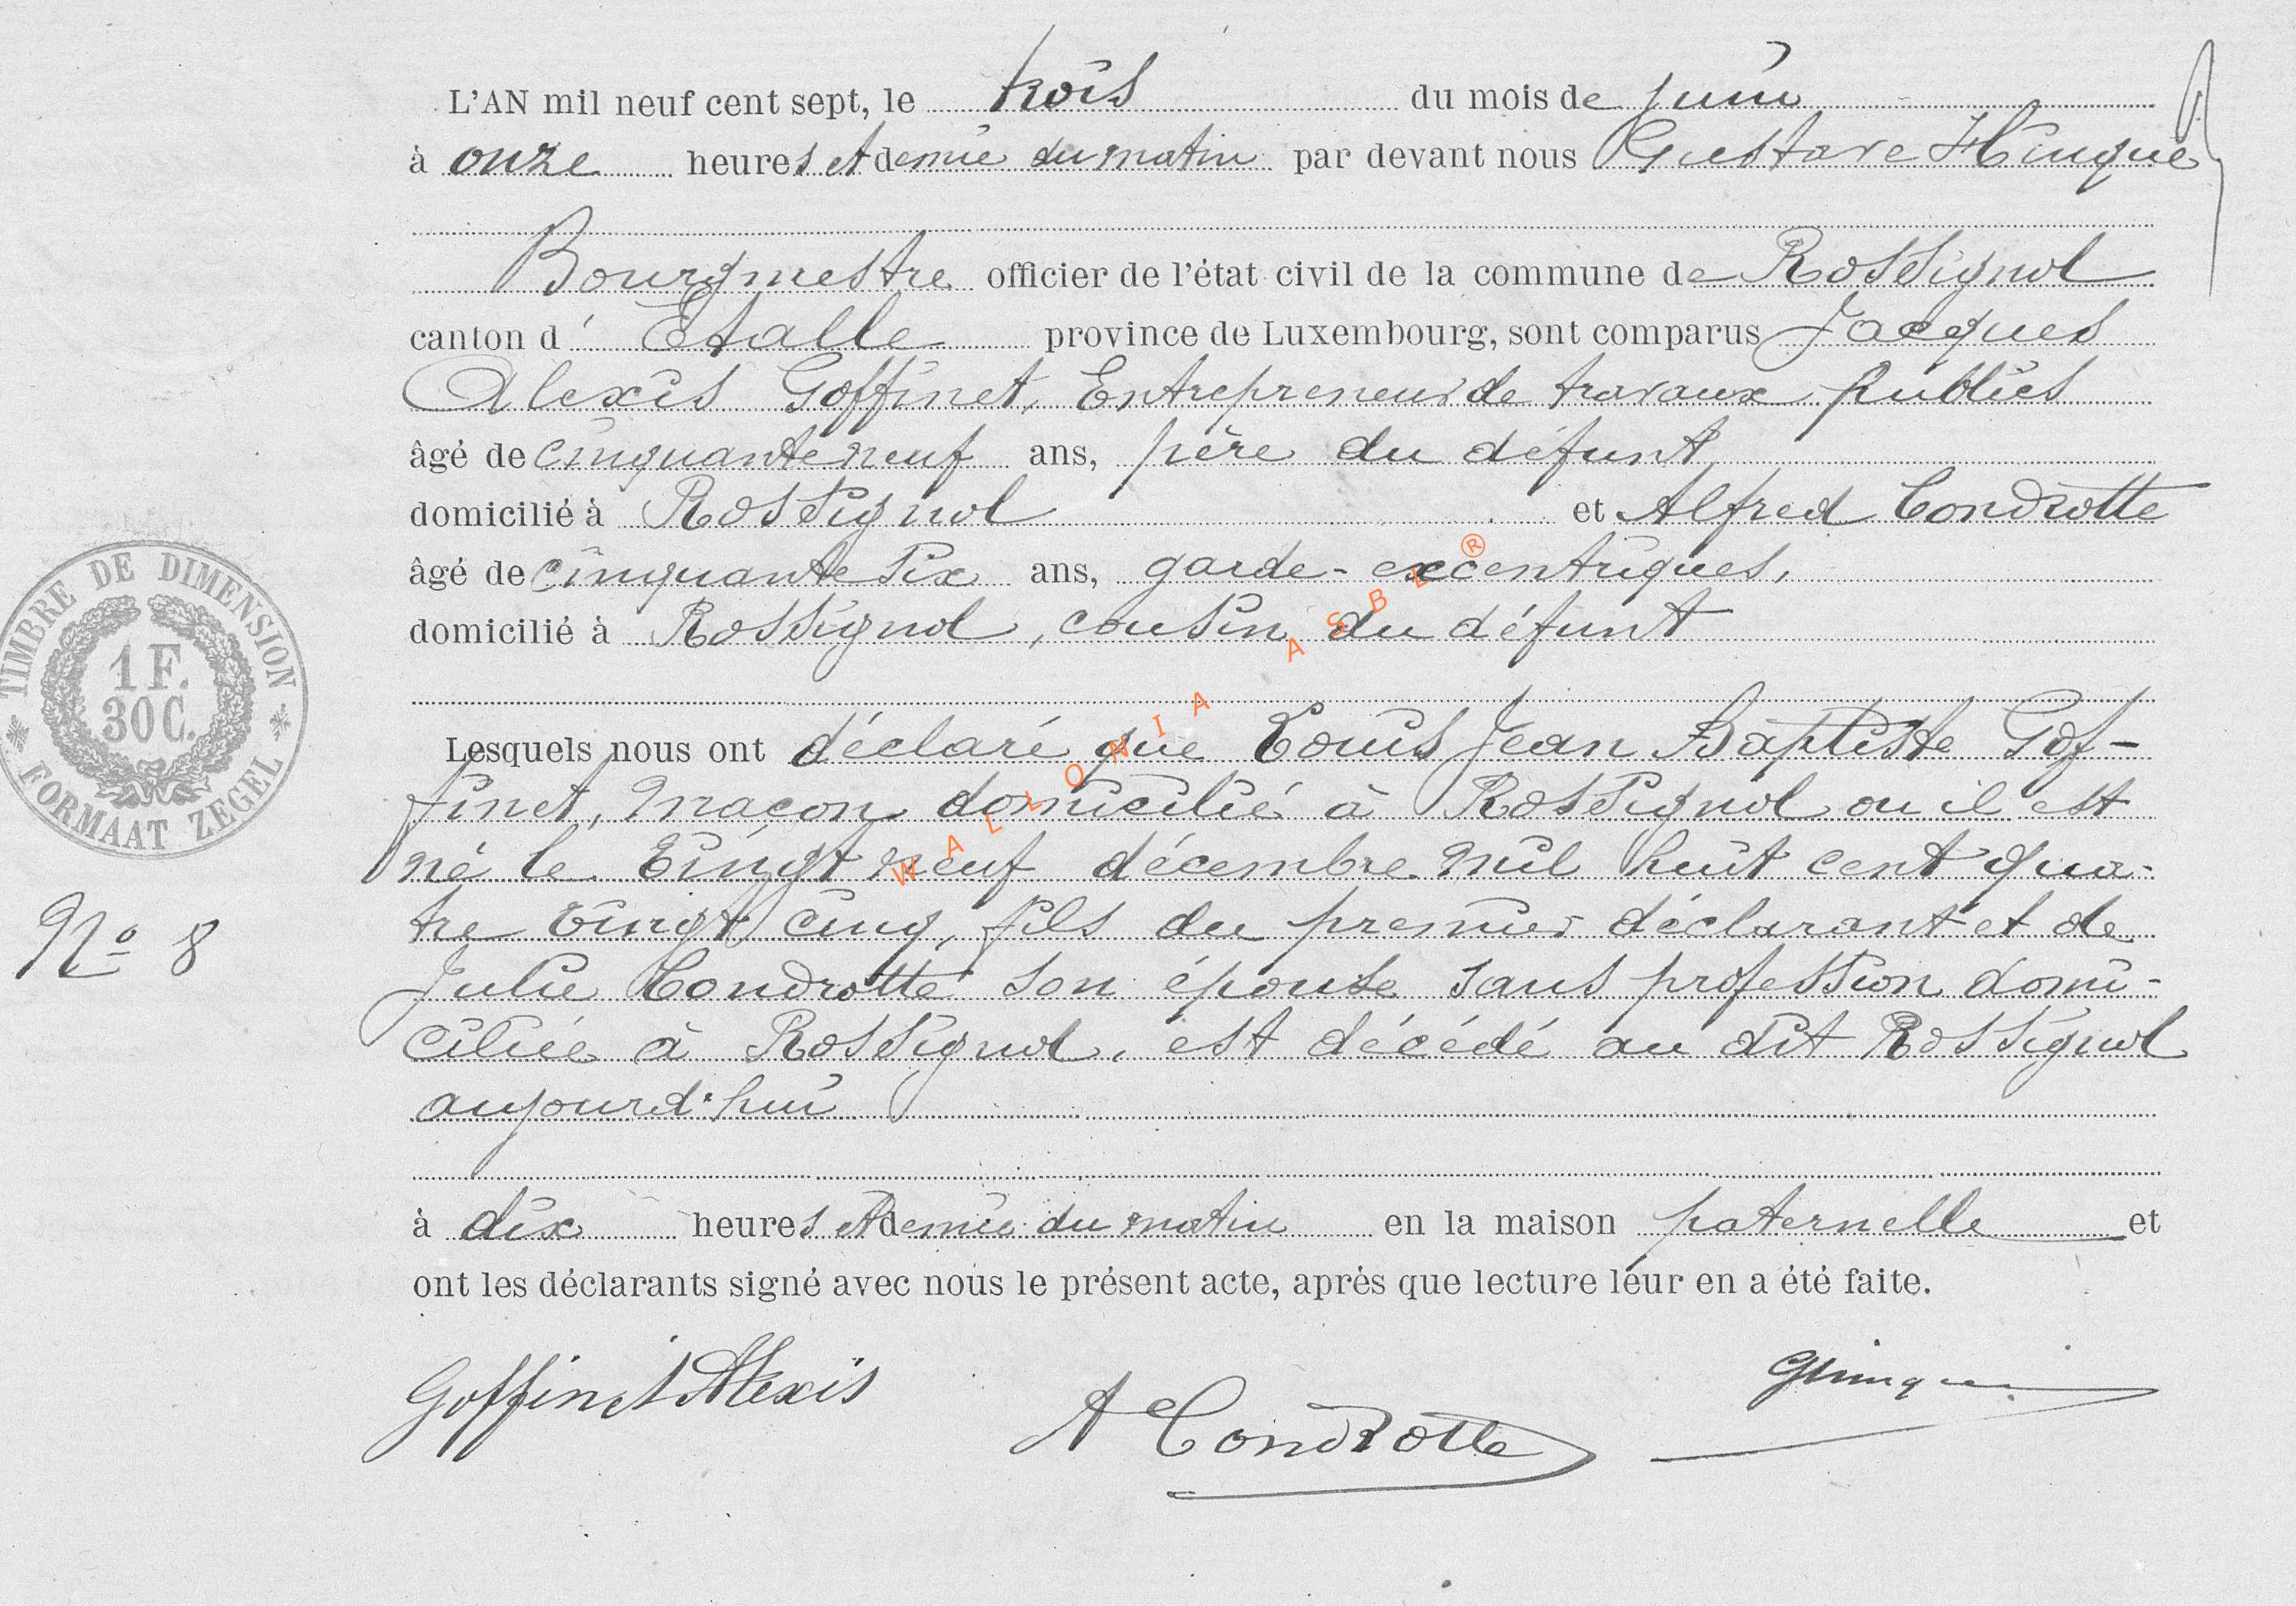 L'AN mil neuf cent sept, le trois du mois de juin
à onze heures et demie du matin par devant nous Gustave Hinque
Bourgmestre officier de l'état civil de la commune de Rossignol
canton d'Etalle province de Luxembourg, sont comparus Jacques
Alexis Goffinet, Entrepreneur de travaux publics
âgé de cinquante neuf ans, père du défunt,
domicilié à Rossignol et Alfred Condrotte
âgé de cinquante six ans, garde-excentriques,
domicilié à Rossignol, cousin du défunt
Lesquels nous ont déclaré que Louis Jean Baptiste Gof-
finet, maçon domicilié à Rossignol ou il est
né le vingt neuf décembre mil huit cent qua-
tre vingt cinq, fils du premier déclarant et de
Julie Condrotte son épouse sans profession domi-
ciliée à Rossignol, est décédé au dit Rossignol
aujourd'hui
à dix heures et demie du matin en la maison paternelle et
ont les déclarants signé avec nous le présent acte, après que lecture leur en a été faite.
Goffinet Alexis
A Condrotte
GHinque
TIMBRE DE DIMENSION
1 F.
30 C.
FORMAAT ZEGEL
No 8
WALLONIA ASBL ®